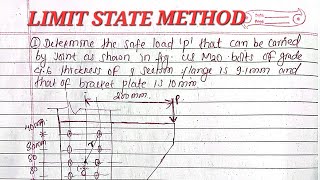 LIMIT STATE METHOD
① Determine the safe load 'p' that can be carried
by joint as shown in fig. Us M20-bolts of grade
4.6 thickness of I section flange is 9.1mm and
that of bracket plate is 10mm.
200mm
P.
40mm
80mm
80
80